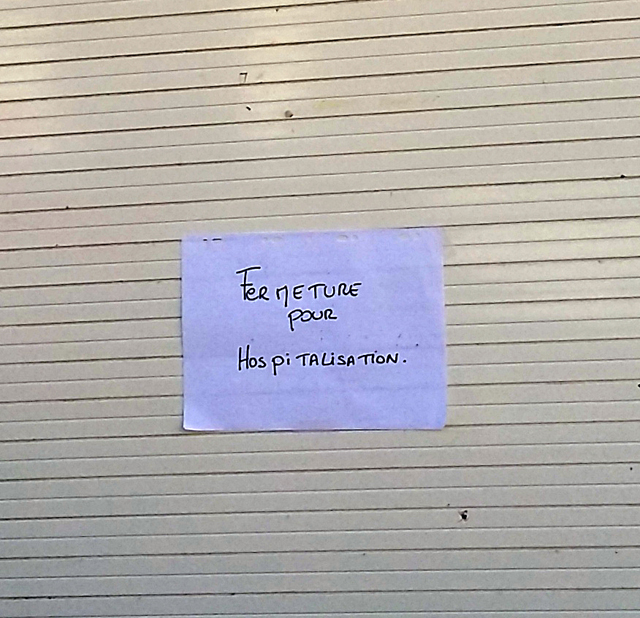 FERMETURE
POUR
HOSPITALISATION.